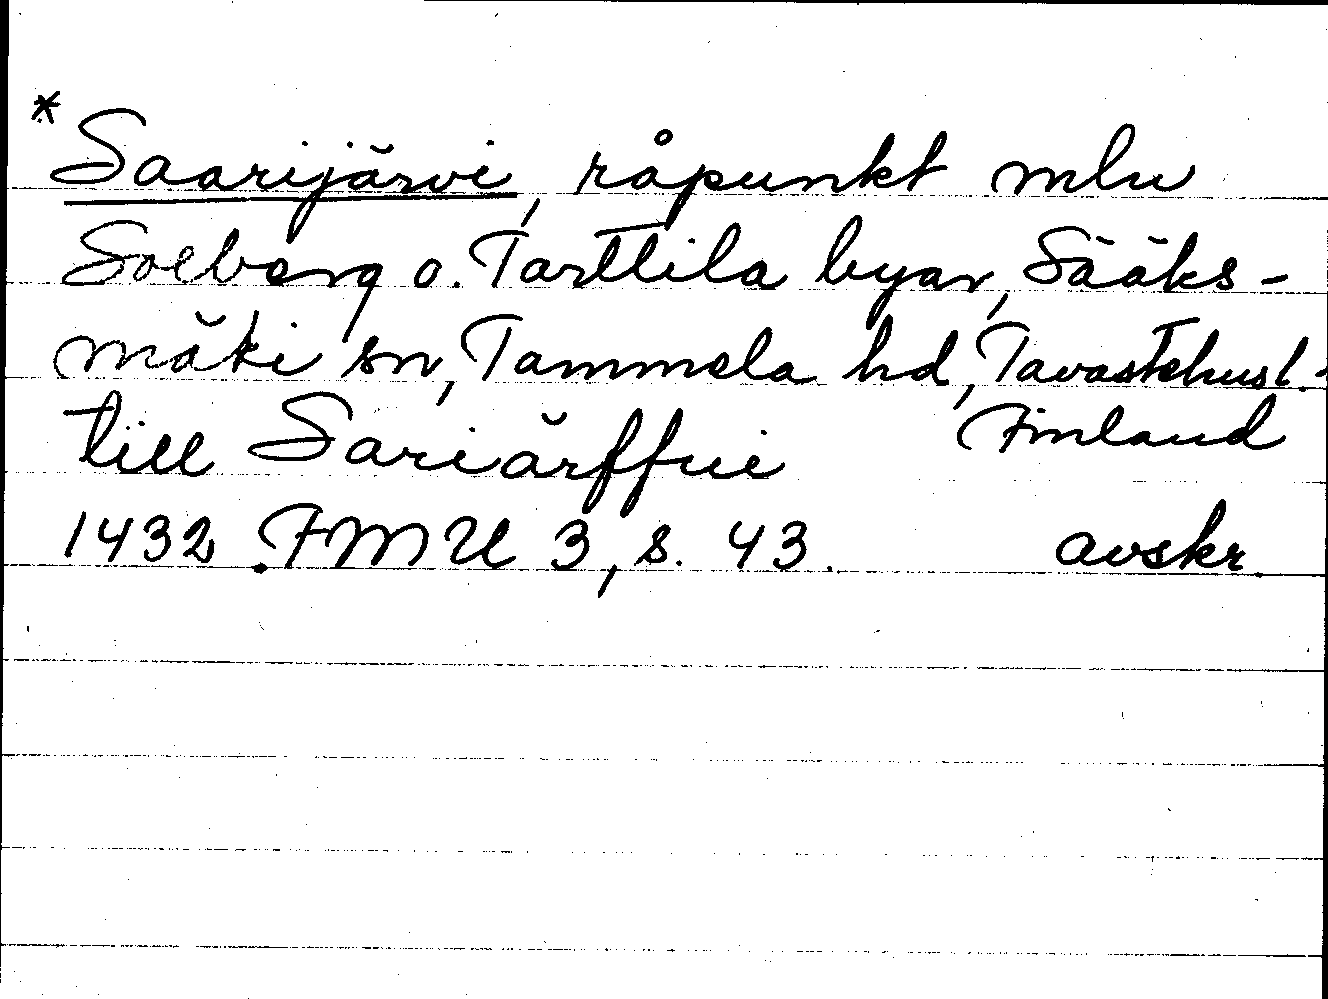 *Saarijärvi, råpunkt mln
Solberg o. Tarttila byar, Sääks-
mäki sn, Tammela hd, Tavastehusl.
Finland
till Sariärffui
1432. FMU 3, s. 43. avskr.